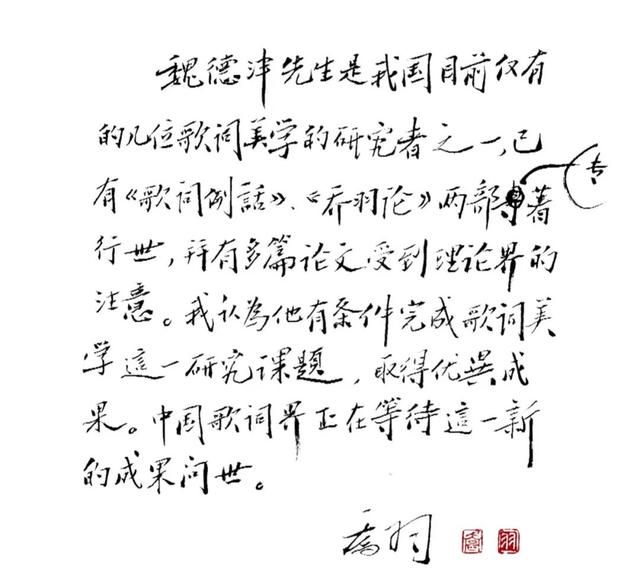 魏德泮先生是我国目前仅有
的几位歌词美学的研究者之一,已
有《歌词例話》、《乔羽论》两部专著
行世,并有多篇论文受到理论界的
注意。我认為他有条件完成歌词美
学這一研究课题,取得优異成
果。中国歌词界正在等待這一新
的成果问世。
乔羽